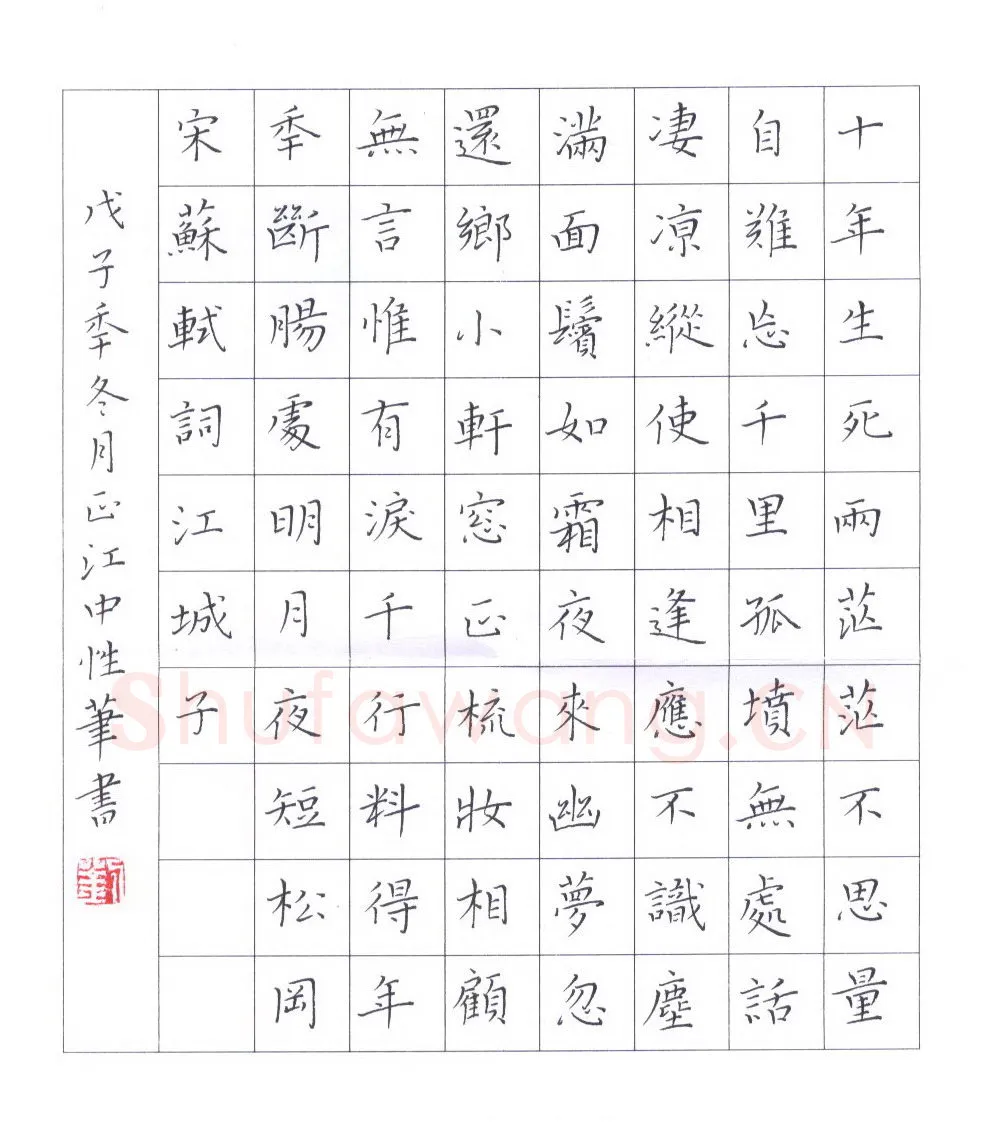 十年生死兩茫茫不思量
自難忘千里孤墳無處話
凄凉縱使相逢應不識塵
滿面鬢如霜夜來幽夢忽
還鄉小軒窓正梳妝相顧
無言惟有淚千行料得年
秊斷腸處明月夜短松岡
宋蘇軾詞江城子
戊子秊冬月正江中性筆書
Shufawang.CN